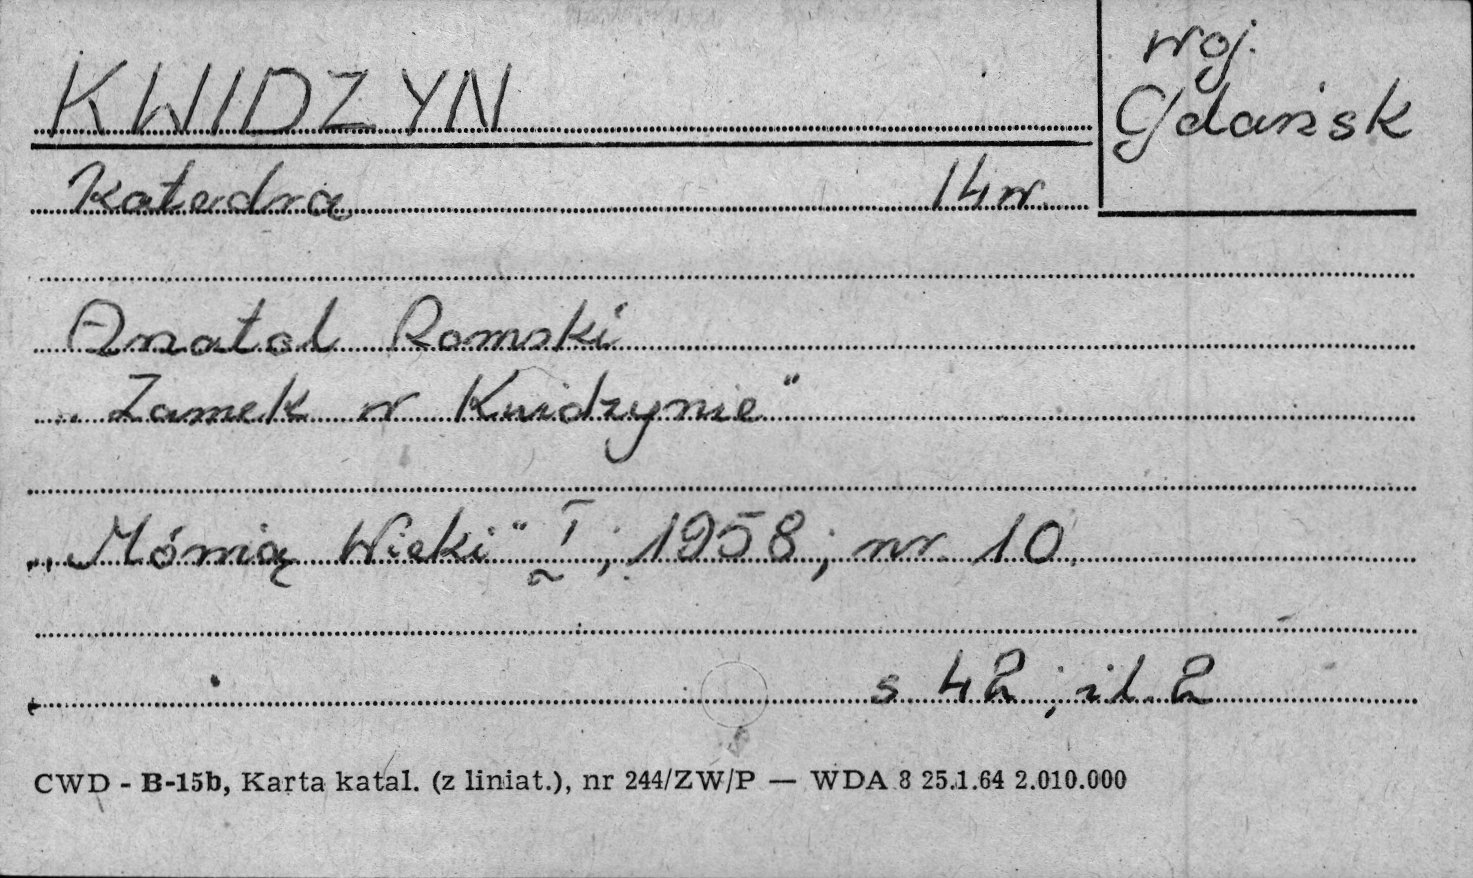 KWIDZYN
woj.
Gdańsk
Katedra 14 w.
Anatol Romski
„Zamek w Kwidzynie"
„Mówią Wieki" I; 1958; nr. 10.
s 42; il. 2
CWD - B-15b, Karta katal. (z liniat.), nr 244/ZW/P — WDA 8 25.1.64 2.010.000